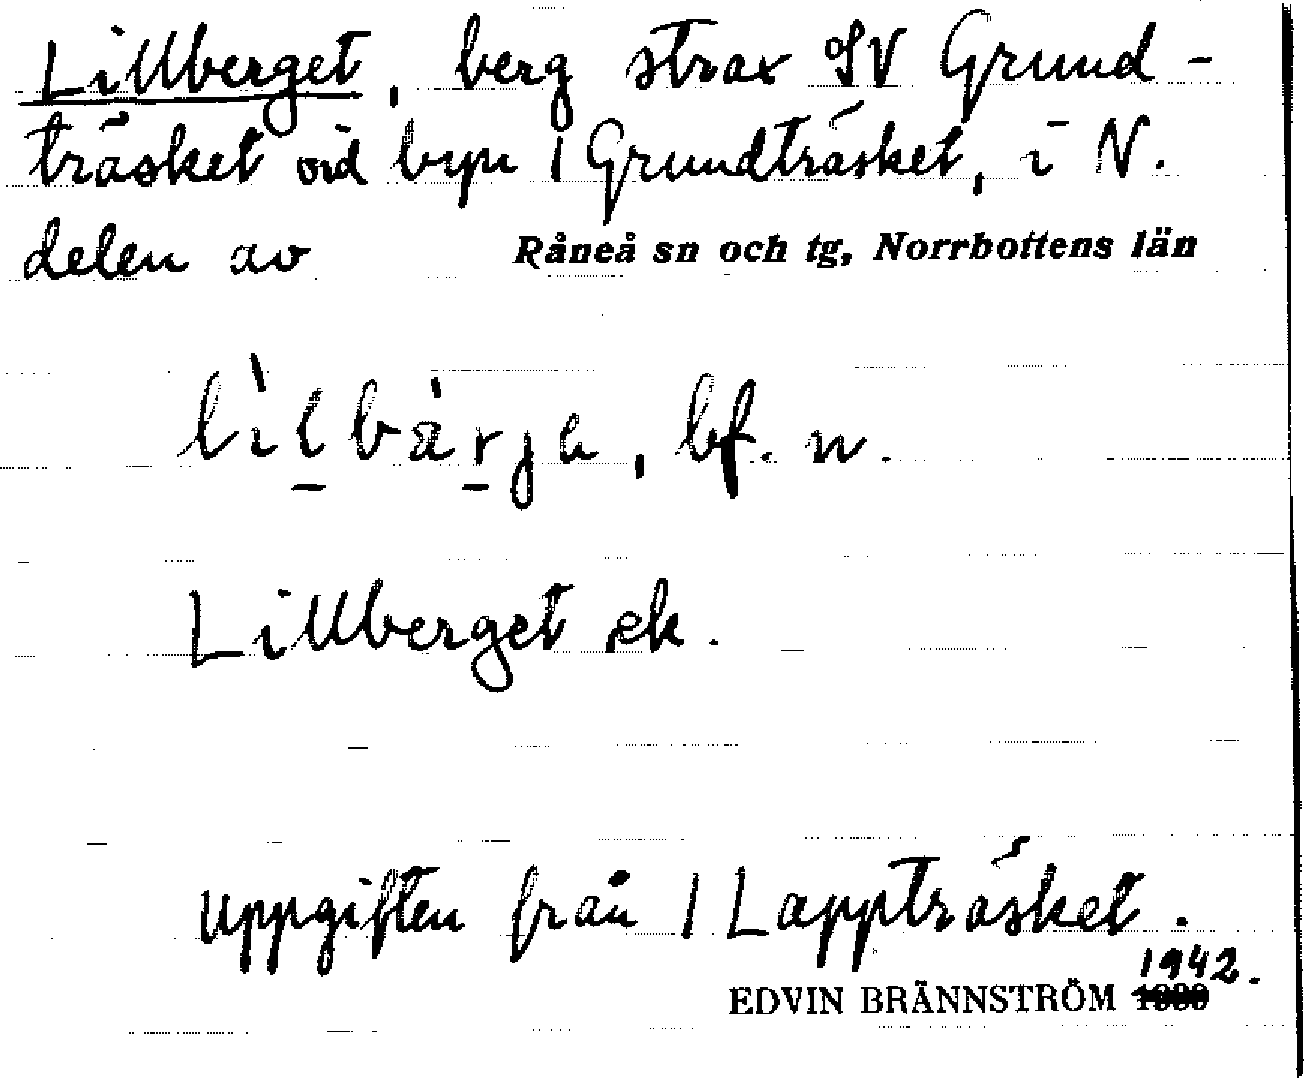 Lillberget, berg strax SV Grund-
träsket vid byn 1 Grundträsket, i N.
delen av Råneå sn och tg, Norrbottens län
bf. n.
Lillberget ek.
Uppgiften från 1 Lappträsket.
1942.
EDVIN BRÄNNSTRÖM